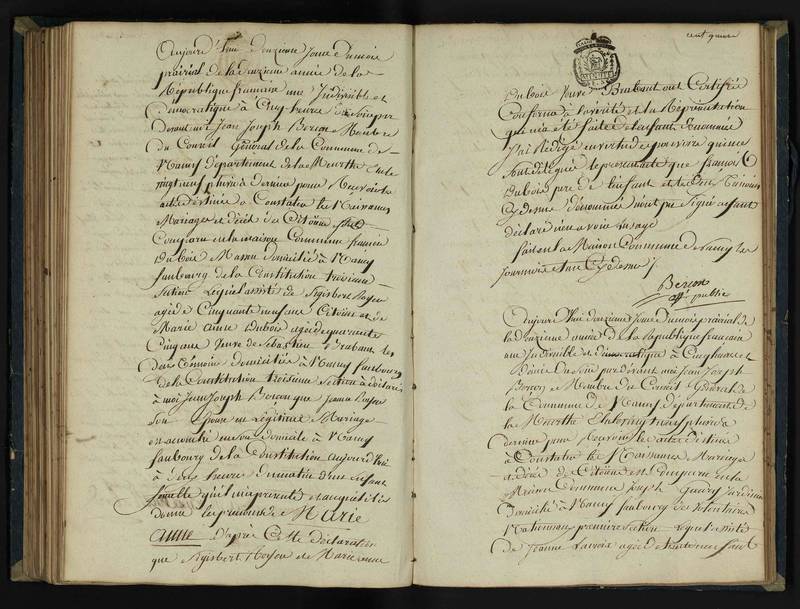 Aujourd'hui douzieme Jour du mois
prairial de la deuxieme année de la
République francaise une Indivisible et
Democratique à Cinq heures du Soir par
devant moi Jean Joseph Beron Membre
du Conseil Général de la Commune de
Nancy département de la Meurthe
dernier pour Recevoir les
actes destinés à Constater les Naissances
Mariages et décès des Citoiens Est
Comparu en la maison Commune francois
Dubois Masson domicilié à Nancy
faubourg de la Constitution troisieme
Section Lequel assisté de Sigisbert
agé de Cinquante neuf ans Citoien et de
Marie anne Dubois agée de quarante
Cinq ans Veuve de Sebastien Brabant les
deux témoins domiciliés à Nancy faubourg
de la Constitution troisieme Section a déclaré
à moi Jean Joseph Beron que
Son Epouse en Légitime Mariage
est accouchée en son domicile à Nancy
faubourg de la Constitution aujourd'hui
à heures du matin d'un enfant
femelle qu'il m'a présenté et auquel il a
donné les prénoms de Marie
anne d'après Cette déclaration
que Sigisbert et Marie anne
Dubois Veuve Brabant ont Certifiée
Conforme à la vérité et la Représentation
qui m'a été faite de l'enfant denommé
J'ai Rédigé en vertu des pouvoirs qui me
sont délégués le présent acte que francois
Dubois pere de l'enfant et les deux témoins
Cy dessus dénommés n'ont pu Signé aïant
déclaré n'en avoir usage
fait en la Maison Commune de Nancy les
Jour mois et an Cy dessus
Beron
off. public
Aujourd'hui douzieme Jour du mois prairial de
la deuxieme année de la République francaise
une Indivisible et démocratique à Cinq heures et
Demie du Soir par devant moi Jean Joseph
Beron Membre du Conseil Général de
la Commune de Nancy département de
la Meurthe
dernier pour Recevoir les actes destinés
à Constater les Naissances Mariages
et décès des Citoiens est Comparu en la
Maison Commune Joseph Jardinier
Domicilié à Nancy faubourg des Volontaires
Nationaux premiere Section Lequel assisté
de Jeanne Lacroix agée de